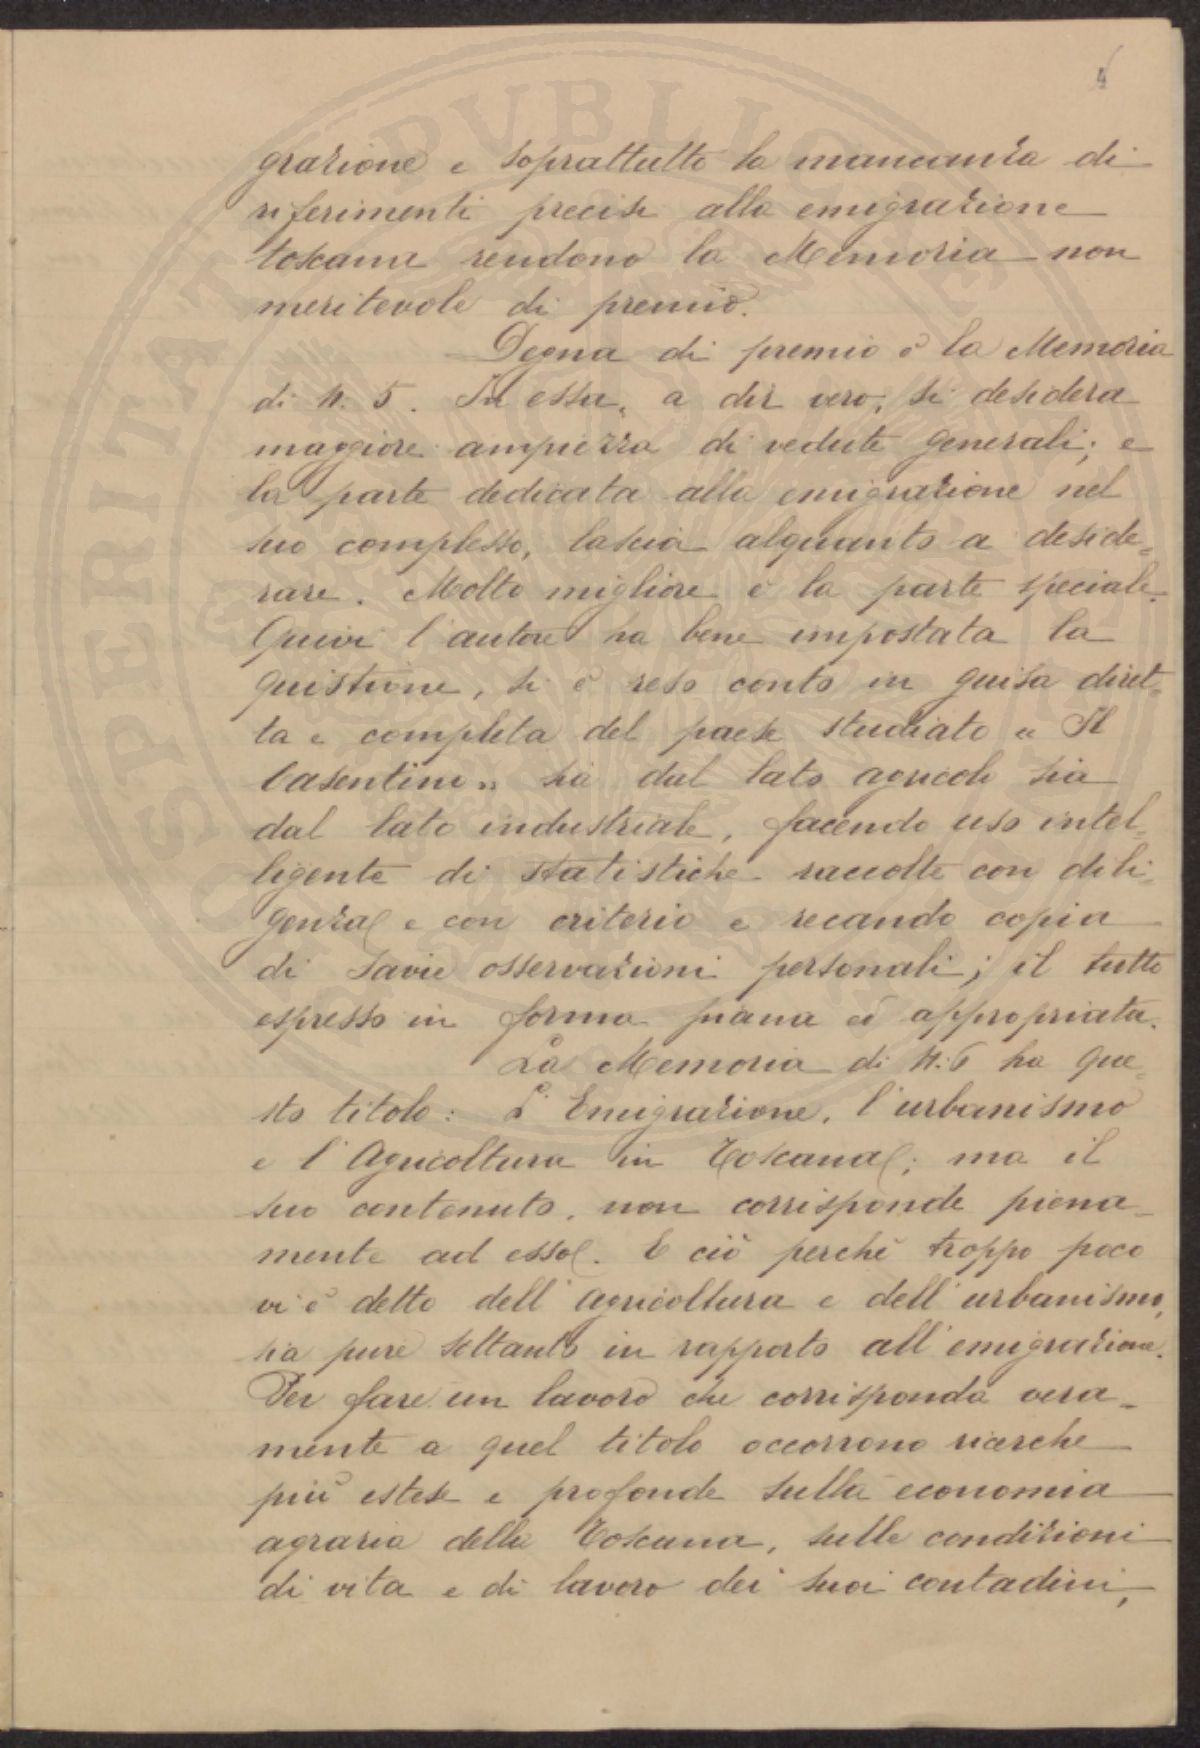 4
grazione e soprattutto la mancanza di
riferimenti precisi alla emigrazione
toscana rendono la Memoria non
meritevole di premio.
Degna di premio è la Memoria
di N. 5. In essa, a dir vero, si desidera
maggiore ampiezza di vedute generali; e
la parte dedicata alla emigrazione nel
suo complesso, lascia alquanto a deside=
rare. Molto migliore è la parte speciale.
Quivi l'autore ha bene impostata la
quistione, si è reso conto in guisa diret=
ta e completa del paese studiato « Il
Casentino » sia dal lato agricolo sia
dal lato industriale, facendo uso intel=
ligente di statistiche raccolte con dili=
genza e con criterio e recando copia
di savie osservazioni personali; il tutto
espresso in forma piana ed appropriata.
La Memoria di N. 6 ha que=
sto titolo: L'Emigrazione, l'urbanismo
e l'Agricoltura in Toscana; ma il
suo contenuto, non corrisponde piena=
mente ad esso. E ciò perchè troppo poco
vi è detto dell'agricoltura e dell'urbanismo,
sia pure soltanto in rapporto all'emigrazione.
Per fare un lavoro che corrisponda vera=
mente a quel titolo occorrono ricerche
più estese e profonde sulla economia
agraria della Toscana, sulle condizioni
di vita e di lavoro dei suoi contadini,
PERITATI PUBLICAE